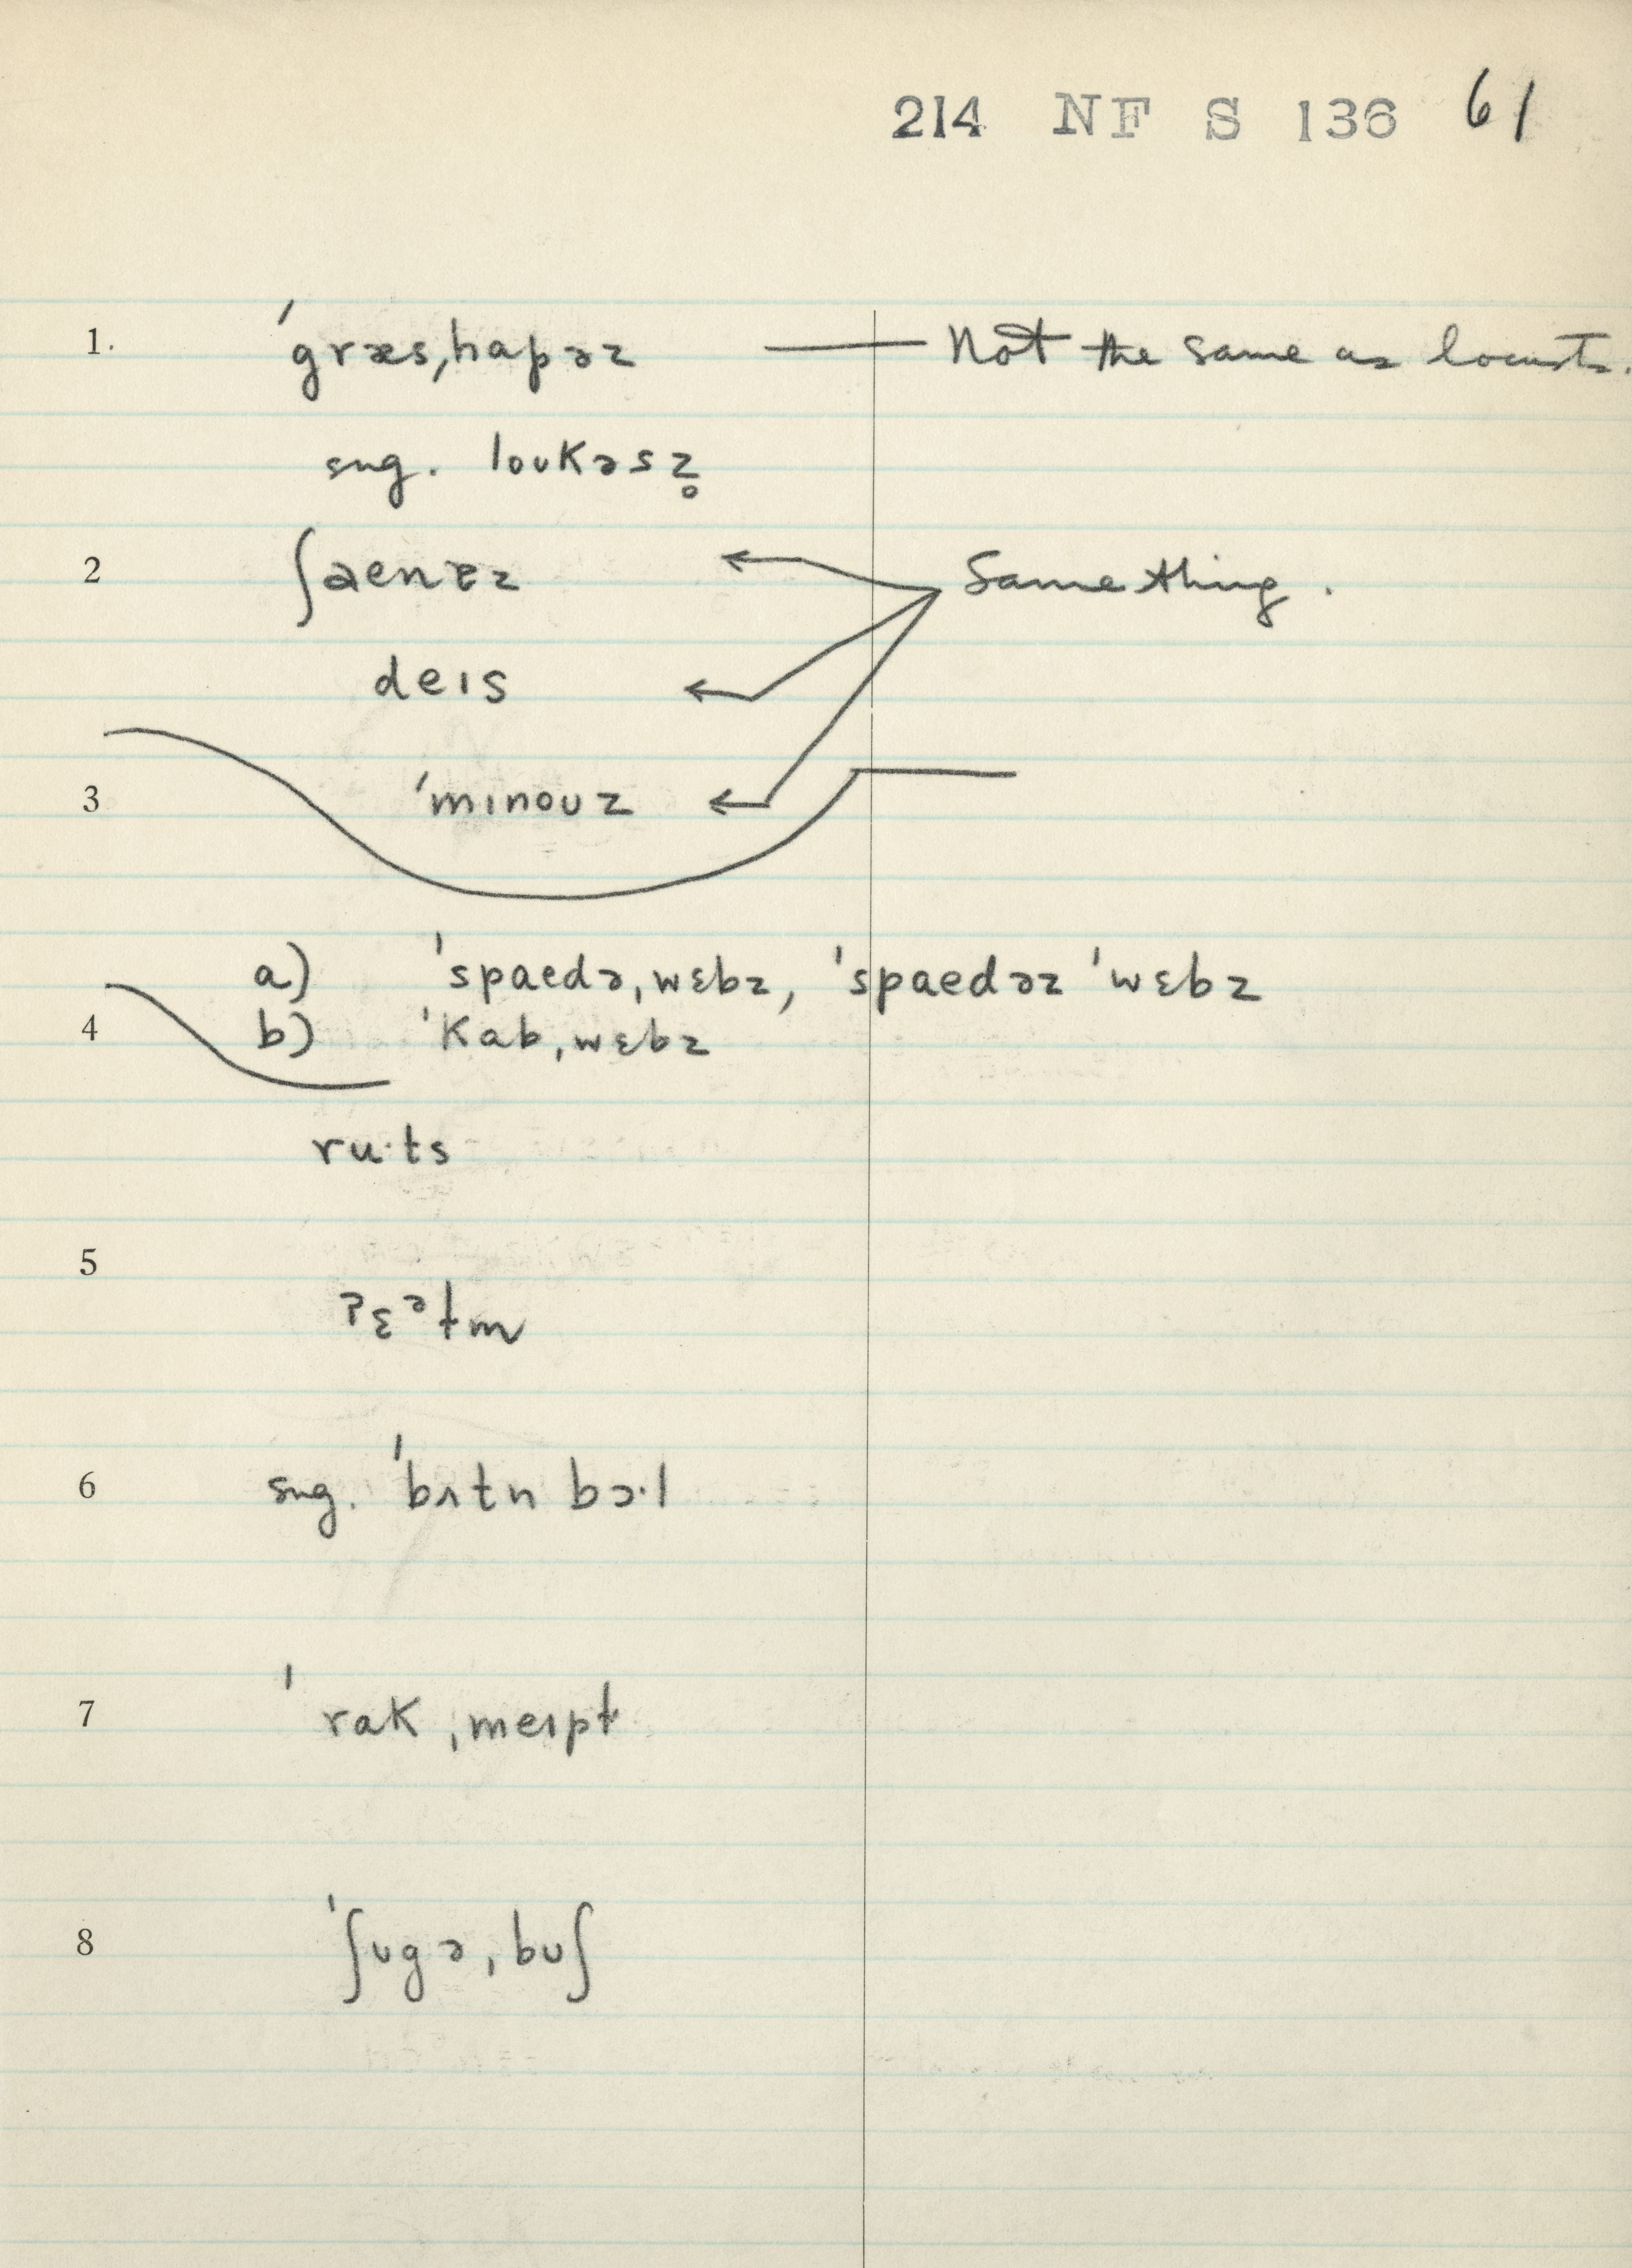 214 NF S 136 61
1. ˈgræsˌhapəz — Not the same as locusts.
sug. loukəsz̥
2 ʃaenɛz Same thing.
deɪs
3 ˈmɪnouz
a) ˈspaedəˌwɛbz, ˈspaedəz ˈwɛbz
4 b) ˈkabˌwɛbz
ru·ts
5
ʔɛᵊɫm
6 sug. ˈbʌtn bɔ·l
7 ˈrakˌmeɪpɫ
8 ˈʃugəˌbuʃ